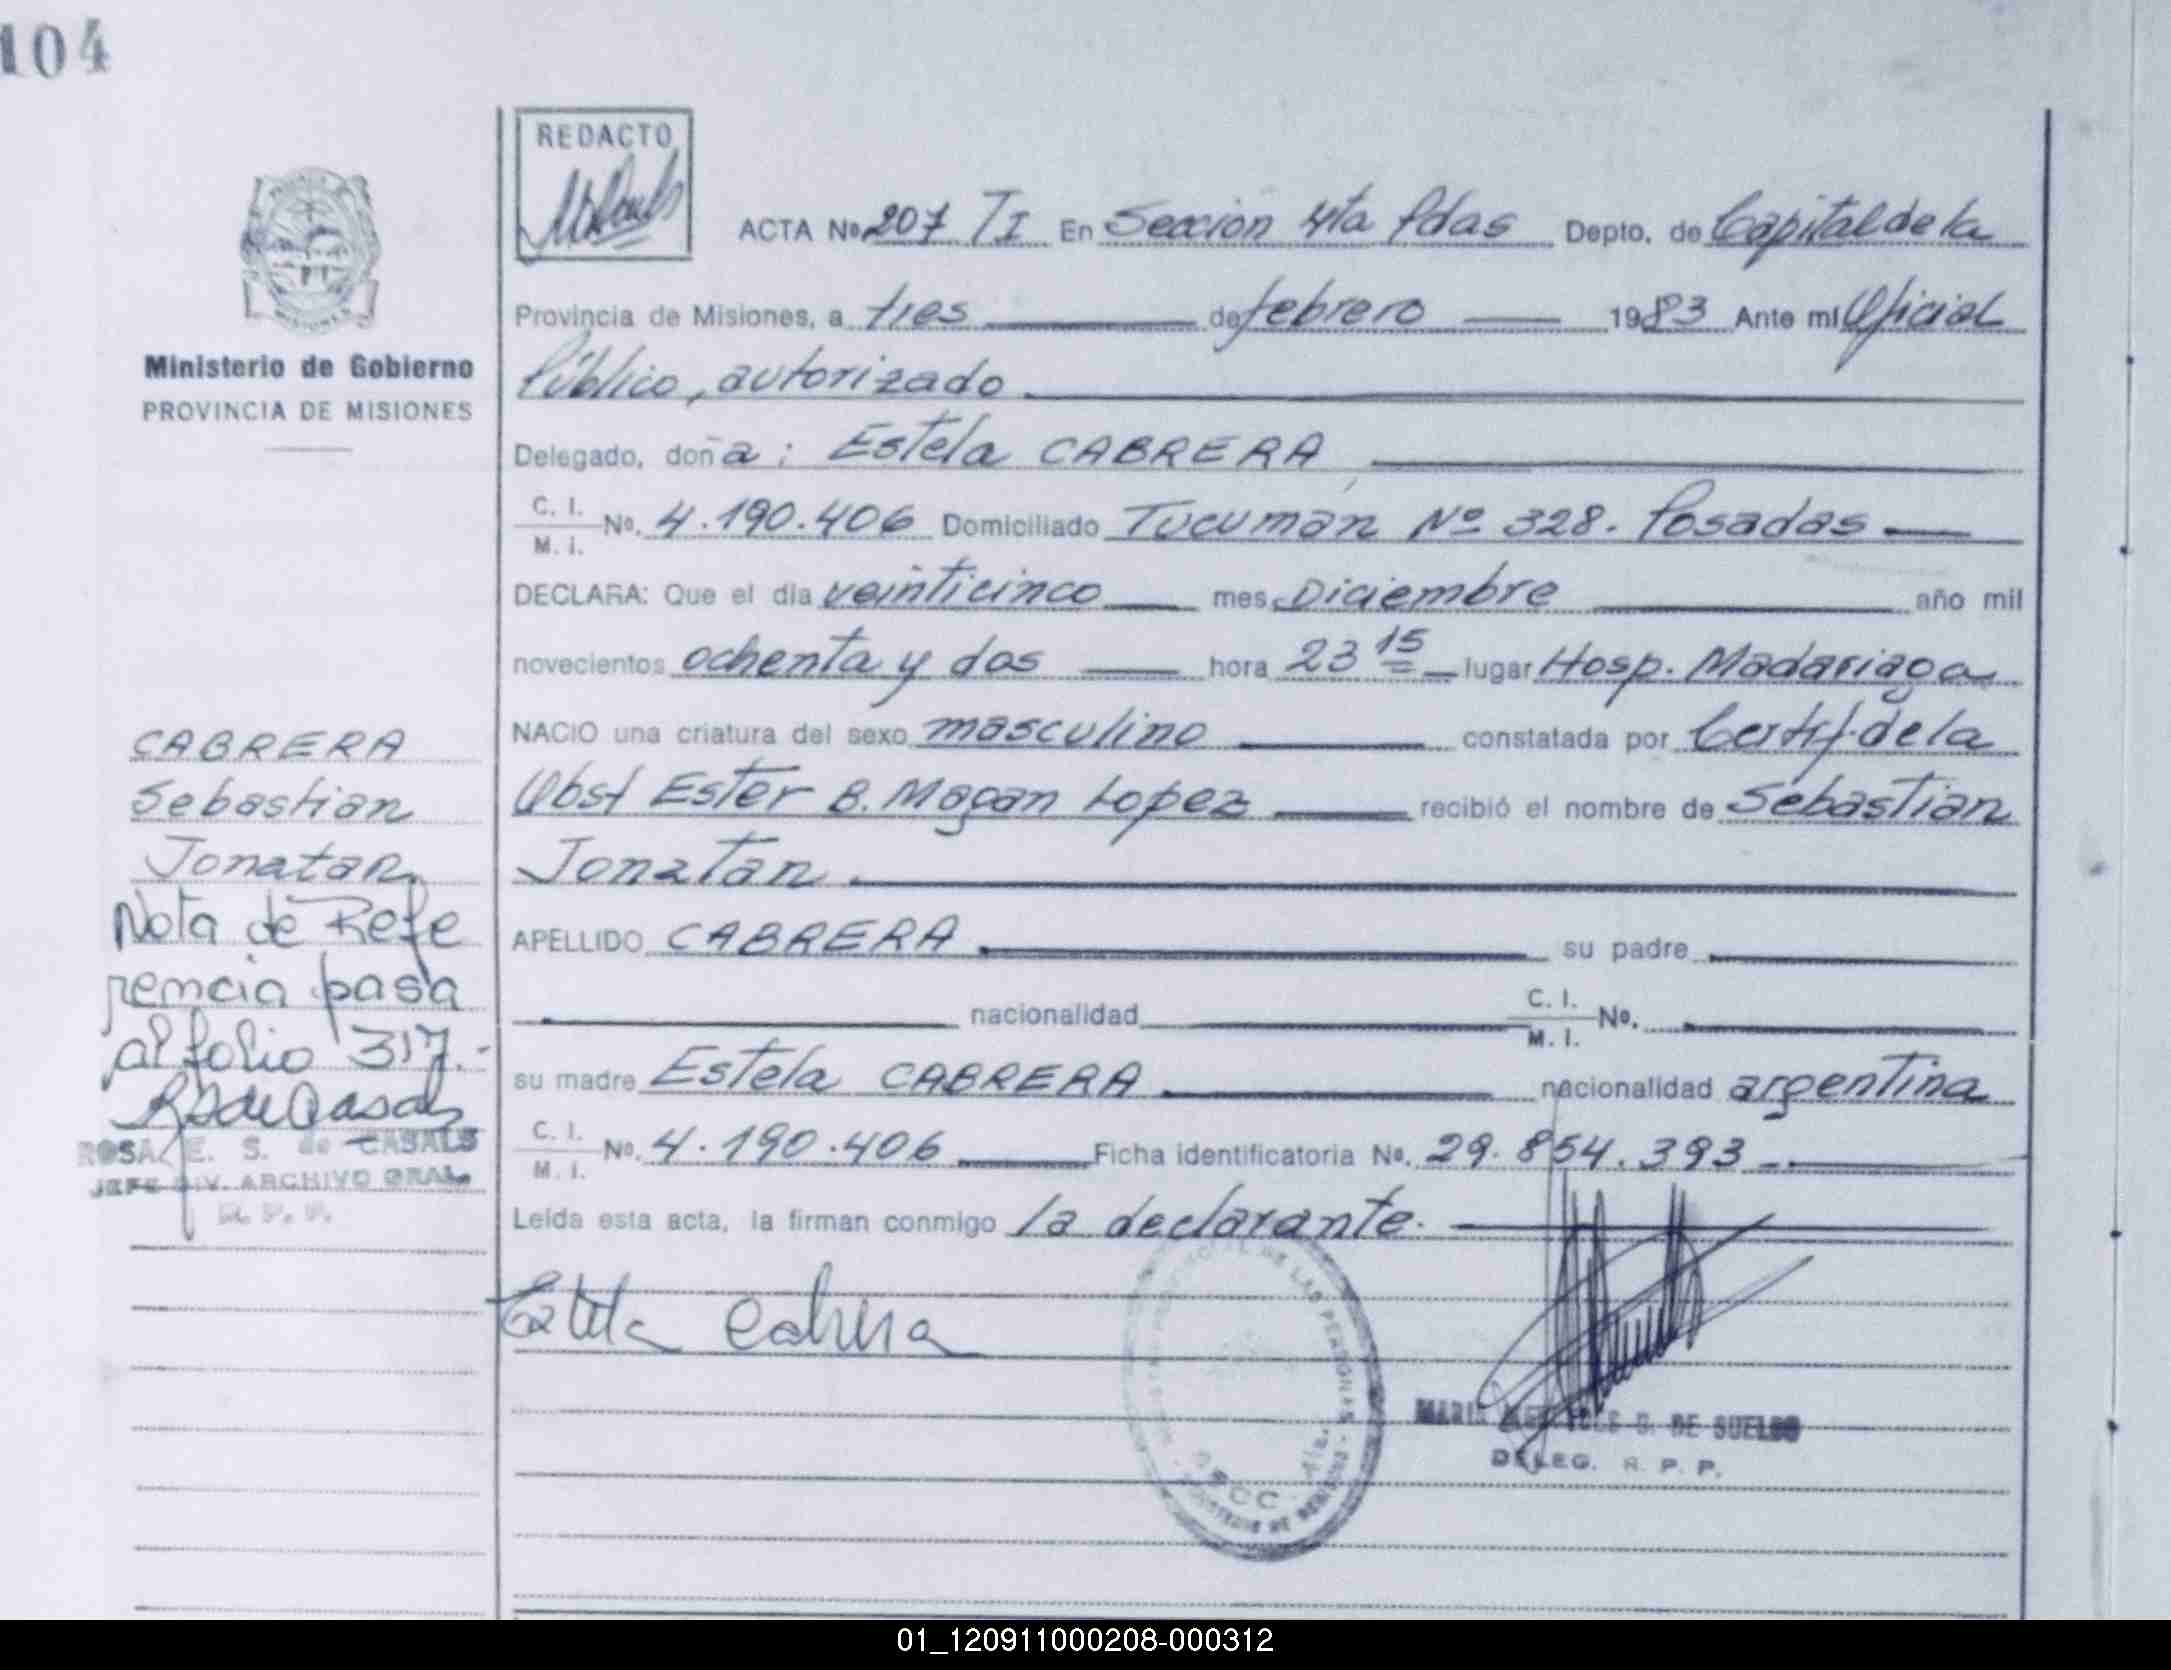 104
REDACTO
ACTA Nº 207 TI En Sección 4ta Pdas Depto. de Capital de la
Provincia de Misiones, a tres de febrero 1983 Ante mi Oficial
Público, autorizado
Delegado, doña: Estela CABRERA
C. I. M. I. Nº. 4.190.406 Domiciliado Tucumán Nº 328. Posadas
DECLARA: Que el día veinticinco mes Diciembre año mil
novecientos ochenta y dos hora 23 15 lugar Hosp. Madariaga
NACIO una criatura del sexo masculino constatada por Certif. de la
Obst Ester B. Magan Lopez recibió el nombre de Sebastian
Jonatan
APELLIDO CABRERA su padre
nacionalidad C. I. M. I. Nº.
su madre Estela CABRERA nacionalidad argentina
C. I. M. I. Nº. 4.190.406 Ficha identificatoria Nº. 29.854.393
Leída esta acta, la firman conmigo la declarante.
Estela Cabrera
DE LAS PERSONAS
MARIA DE SUELDO
DELEG. R. P. P.
MISIONES
Ministerio de Gobierno
PROVINCIA DE MISIONES
CABRERA
Sebastian
Jonatan
Nota de Refe
rencia pasa
al folio 317.-
ROSA E. S. de CASALS
JEFE DIV. ARCHIVO GRAL.
R. P. P.
01_120911000208-000312